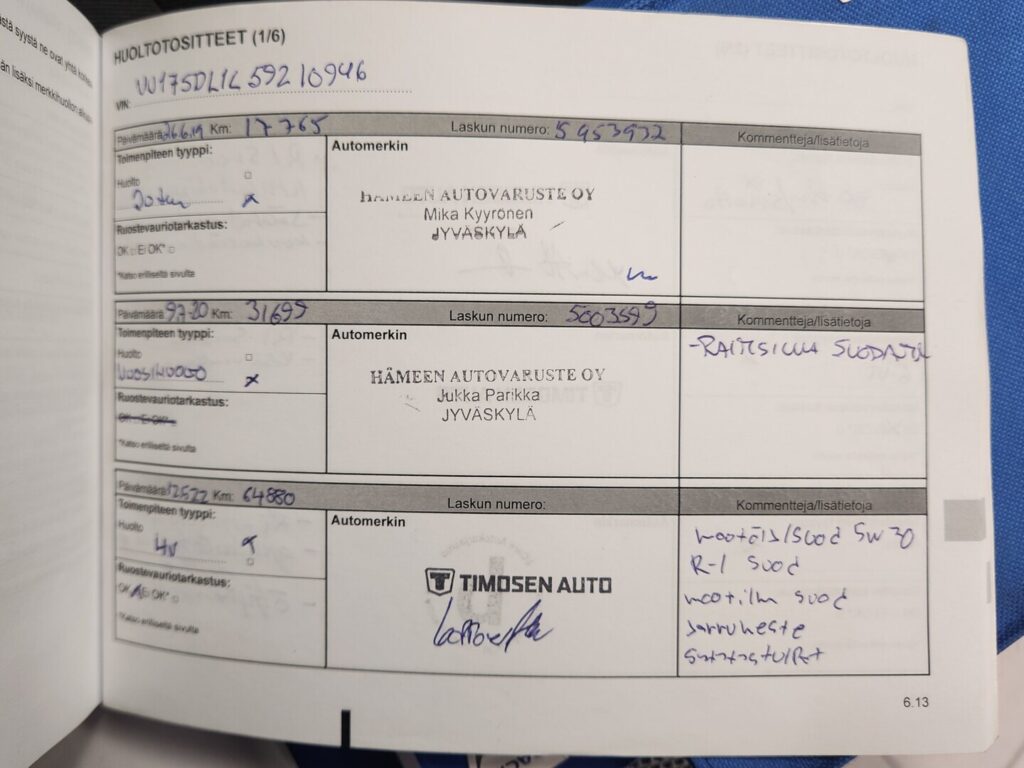 stä syystä ne ovat yhtä
än lisäksi merkkihuollon
HUOLTOTOSITTEET (1/6)
VIN:
Päivämäärä 26.6.19 Km: 17765 Laskun numero: 5453972 Kommentteja/lisätietoja
Toimenpiteen tyyppi:
Automerkin
Huolto
x
HÄMEEN AUTOVARUSTE OY
Mika Kyyrönen
JYVÄSKYLÄ
Ruostevauriotarkastus:
OK □ Ei OK* □
*Katso erilliseltä sivulta
Päivämäärä 9.7.20 Km: 31699 Laskun numero: 5003599 Kommentteja/lisätietoja
Toimenpiteen tyyppi:
Automerkin
-RAITISILMA SUODATIN
Huolto
VUOSIHUOLTO x
HÄMEEN AUTOVARUSTE OY
Jukka Parikka
JYVÄSKYLÄ
Ruostevauriotarkastus:
OK □ Ei OK* □
*Katso erilliseltä sivulta
Päivämäärä 12522 Km: 64880 Laskun numero: Kommentteja/lisätietoja
Toimenpiteen tyyppi:
Automerkin
Huolto
TIMOSEN AUTO
Ruostevauriotarkastus:
OK Ei OK* □
*Katso erilliseltä sivulta
/Suod 5W30
R-l Suod
mootilm suod
Jarruneste
6.13